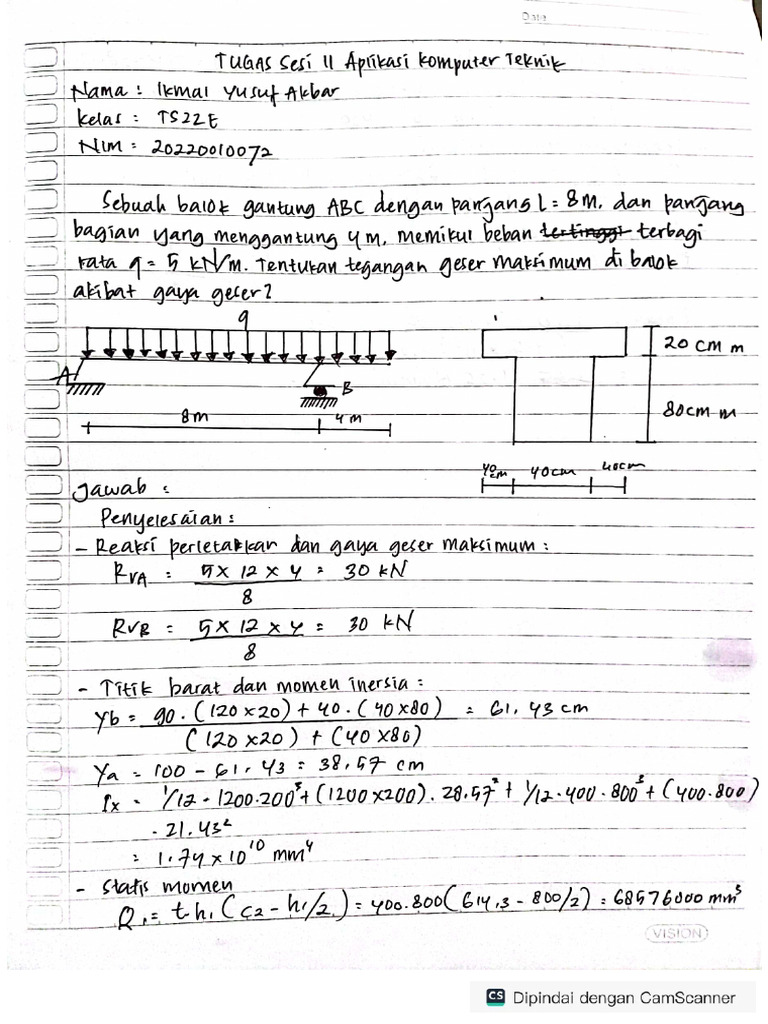 Date
TUGAS Sesi 11 Aplikasi Komputer Teknik
Nama : Ikmal Yusuf Akbar
Kelas : TS22E
Nim : 20220010072
Sebuah balok gantung ABC dengan panjang L = 8 m. dan panjang
bagian yang menggantung 4 m, memikul beban tertinggi terbagi
rata q = 5 kN/m. Tentukan tegangan geser maksimum di balok
akibat gaya geser?
q
A
B
8m
4 m
20 cm m
80 cm m
40 cm
40 cm
40 cm
Jawab :
Penyelesaian :
- Reaksi perletakkan dan gaya geser maksimum :
RVA = 5 x 12 x 4 = 30 kN
8
RVB = 5 x 12 x 4 = 30 kN
8
- Titik barat dan momen inersia :
Yb = 90 . (120 x 20) + 40 . (40 x 80) = 61,43 cm
(120 x 20) + (40 x 80)
Ya = 100 - 61,43 = 38,57 cm
Ix = 1/12 . 1200 . 200³ + (1200 x 200) . 28,57² + 1/12 . 400 . 800³ + (400 . 800)
. 21.43²
= 1,74 x 10¹⁰ mm⁴
- Statis momen
Q1 = t . h1 (c2 - h1/2) = 400 . 800 (614,3 - 800/2) = 68576000 mm³
VISION
CS Dipindai dengan CamScanner